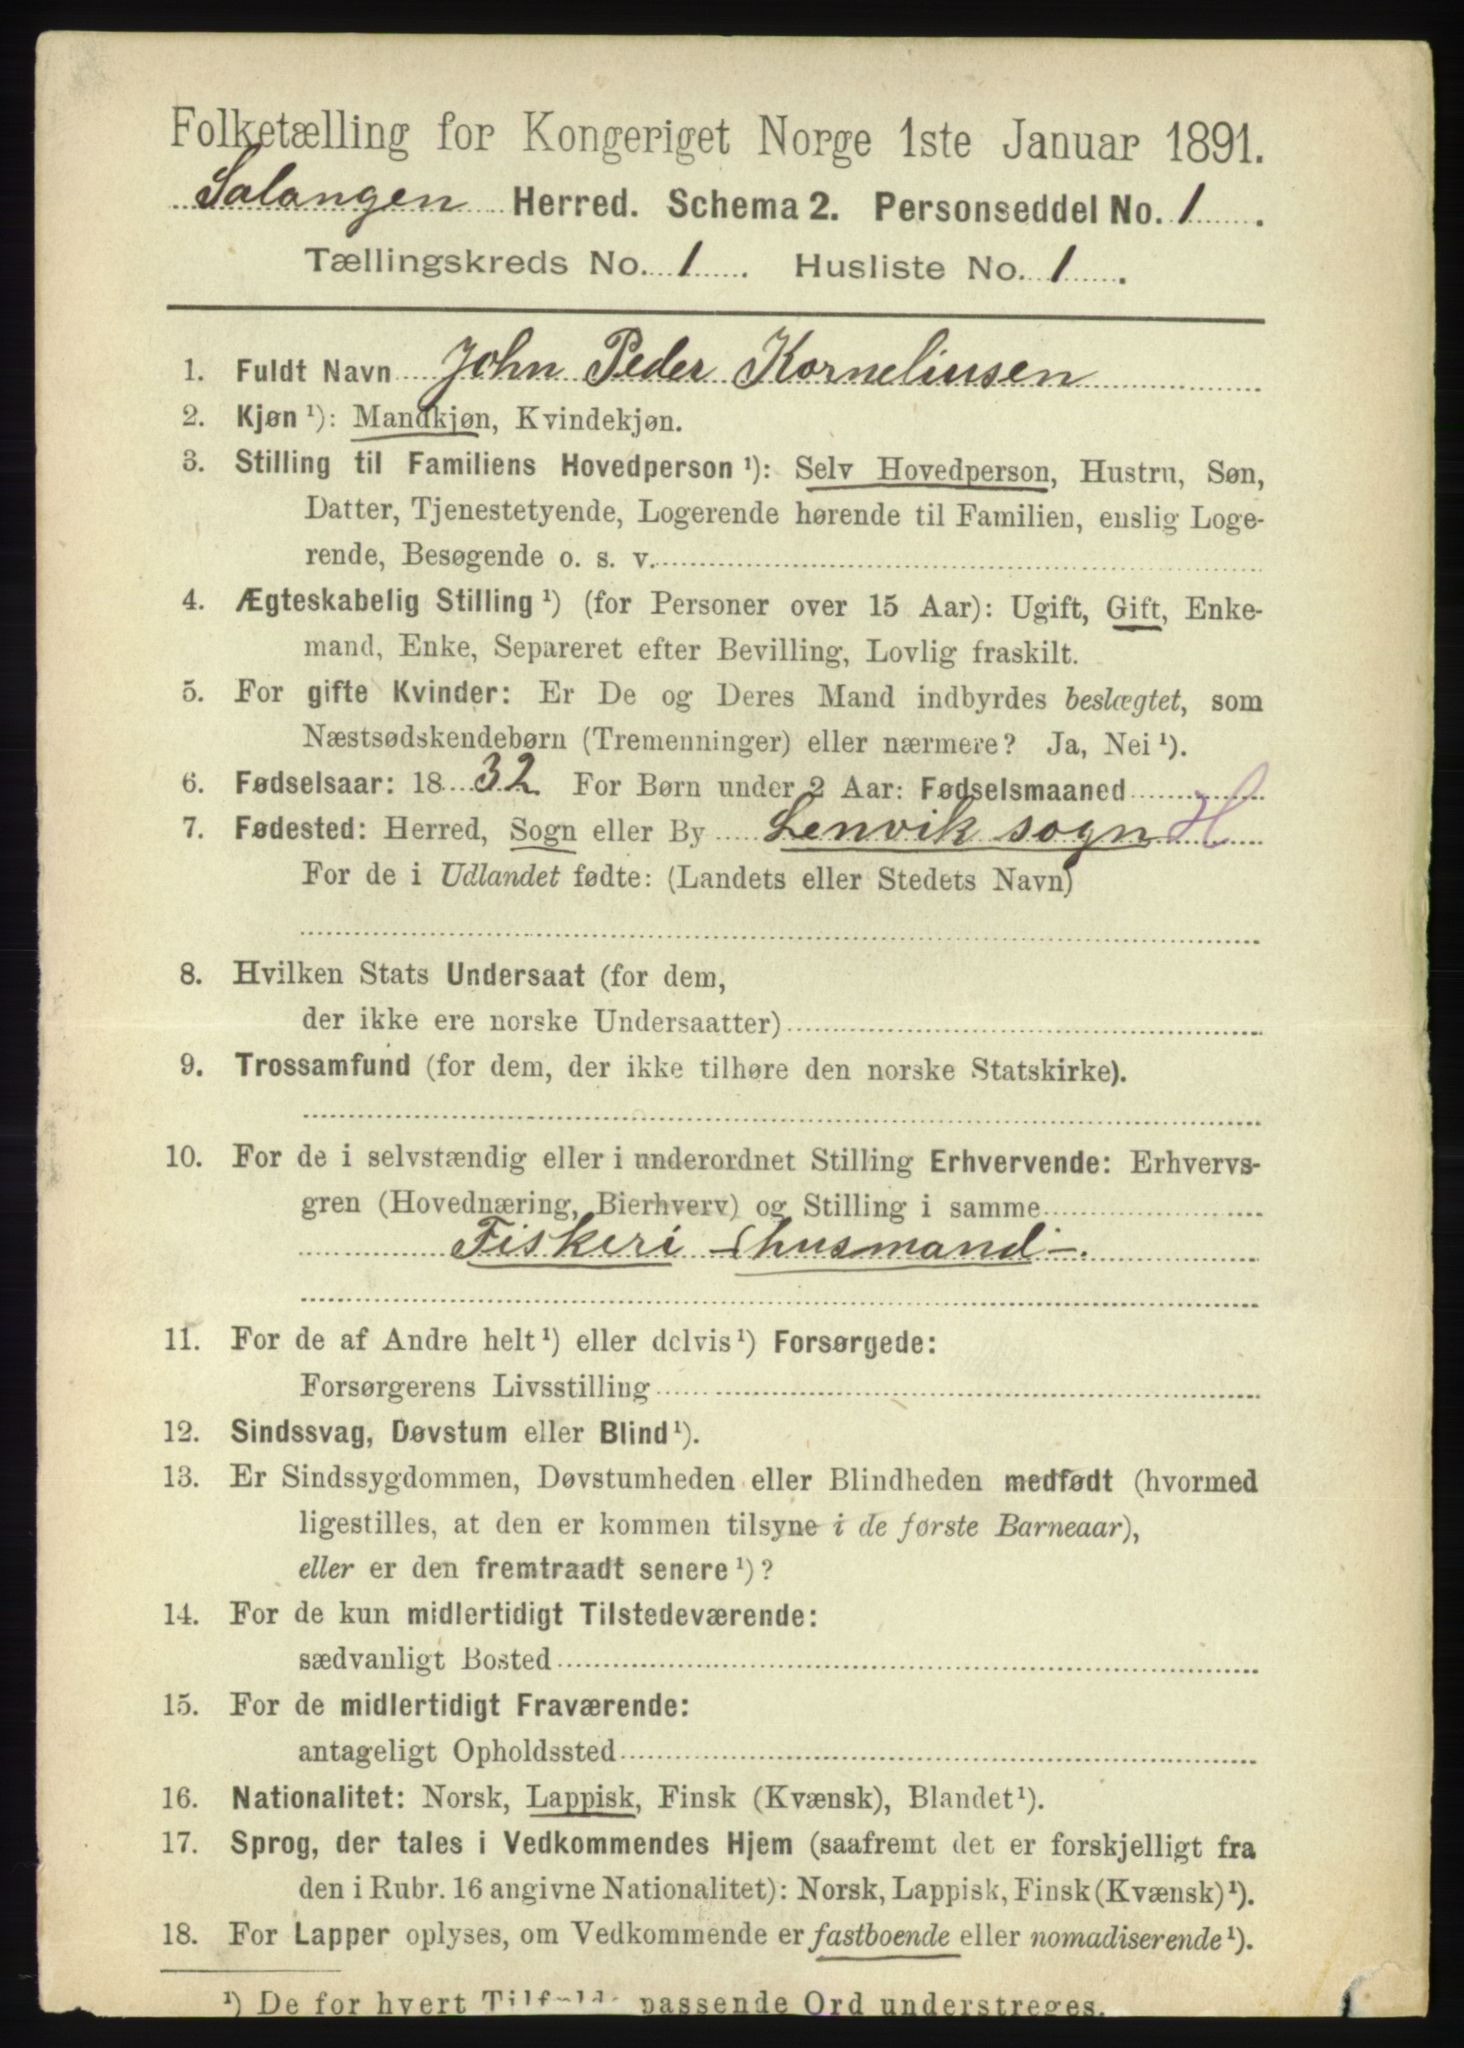 Folketælling for Kongeriget Norge 1ste Januar 1891.
Salangen Herred. Schema 2. Personseddel No. 1.
Tællingskreds No. 1. Husliste No. 1.
1. Fuldt Navn John Peder Korneliusen
2. Kjøn ¹): Mandkjøn, Kvindekjøn.
3. Stilling til Familiens Hovedperson ¹): Selv Hovedperson, Hustru, Søn,
Datter, Tjenestetyende, Logerende hørende til Familien, enslig Loge-
rende, Besøgende o. s. v.
4. Ægteskabelig Stilling ¹) (for Personer over 15 Aar): Ugift, Gift, Enke-
mand, Enke, Separeret efter Bevilling, Lovlig fraskilt.
5. For gifte Kvinder: Er De og Deres Mand indbyrdes beslægtet, som
Næstsødskendebørn (Tremenninger) eller nærmere? Ja, Nei ¹).
6. Fødselsaar: 1832 For Børn under 2 Aar: Fødselsmaaned
7. Fødested: Herred, Sogn eller By Lenvik sogn H
For de i Udlandet fødte: (Landets eller Stedets Navn)
8. Hvilken Stats Undersaat (for dem,
der ikke ere norske Undersaatter)
9. Trossamfund (for dem, der ikke tilhøre den norske Statskirke).
10. For de i selvstændig eller i underordnet Stilling Erhvervende: Erhvervs-
gren (Hovednæring, Bierhverv) og Stilling i samme
Fiskeri (husmand).
11. For de af Andre helt ¹) eller delvis ¹) Forsørgede:
Forsørgerens Livsstilling
12. Sindssvag, Døvstum eller Blind ¹).
13. Er Sindssygdommen, Døvstumheden eller Blindheden medfødt (hvormed
ligestilles, at den er kommen tilsyne i de første Barneaar),
eller er den fremtraadt senere ¹)?
14. For de kun midlertidigt Tilstedeværende:
sædvanligt Bosted
15. For de midlertidigt Fraværende:
antageligt Opholdssted
16. Nationalitet: Norsk, Lappisk, Finsk (Kvænsk), Blandet ¹).
17. Sprog, der tales i Vedkommendes Hjem (saafremt det er forskjelligt fra
den i Rubr. 16 angivne Nationalitet): Norsk, Lappisk, Finsk (Kvænsk) ¹).
18. For Lapper oplyses, om Vedkommende er fastboende eller nomadiserende ¹).
¹) De for hvert Tilfælde passende Ord understreges.